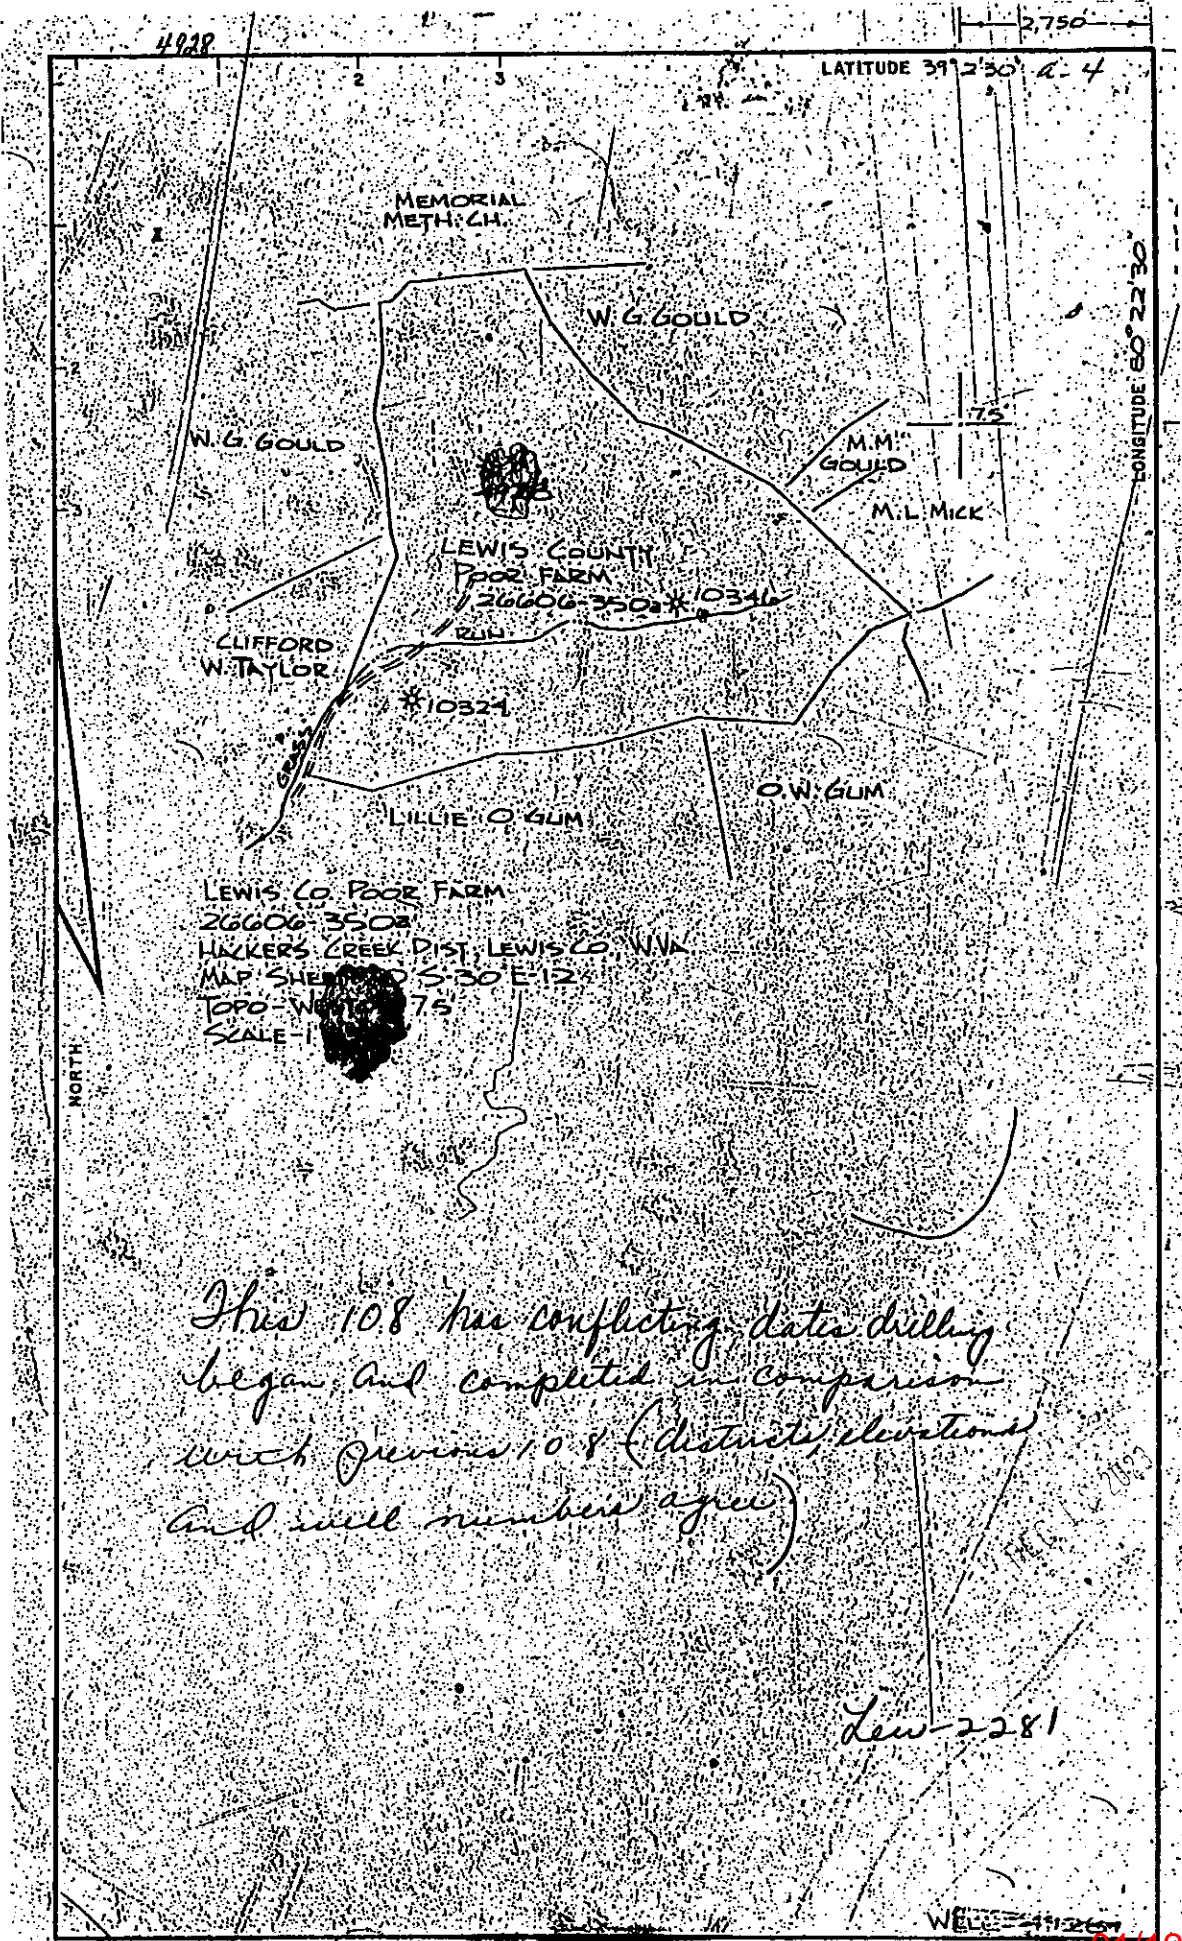 4928
2,750
LATITUDE 39°2'30" a-4
2
3
MEMORIAL
METH. CH.
LONGITUDE 80°22'30"
W. G. GOULD
2
7.5'
W. G. GOULD
M.M.
GOULD
M.L. MICK
3
LEWIS COUNTY
POOR FARM
26606-350a 10346
RUN
CLIFFORD
W. TAYLOR
10324
GRASS
O.W. GUM
LILLIE O GUM
LEWIS CO POOR FARM
26606-350a
HACKERS CREEK DIST. LEWIS CO W.VA
MAP SHEET S-30 E-12
TOPO- 7.5'
SCALE-1
NORTH
This 108 has conflicting dates drilling
began and completed in comparison
with previous 108 (districts, elevations
and well numbers agree)
Lew-2281
WELL